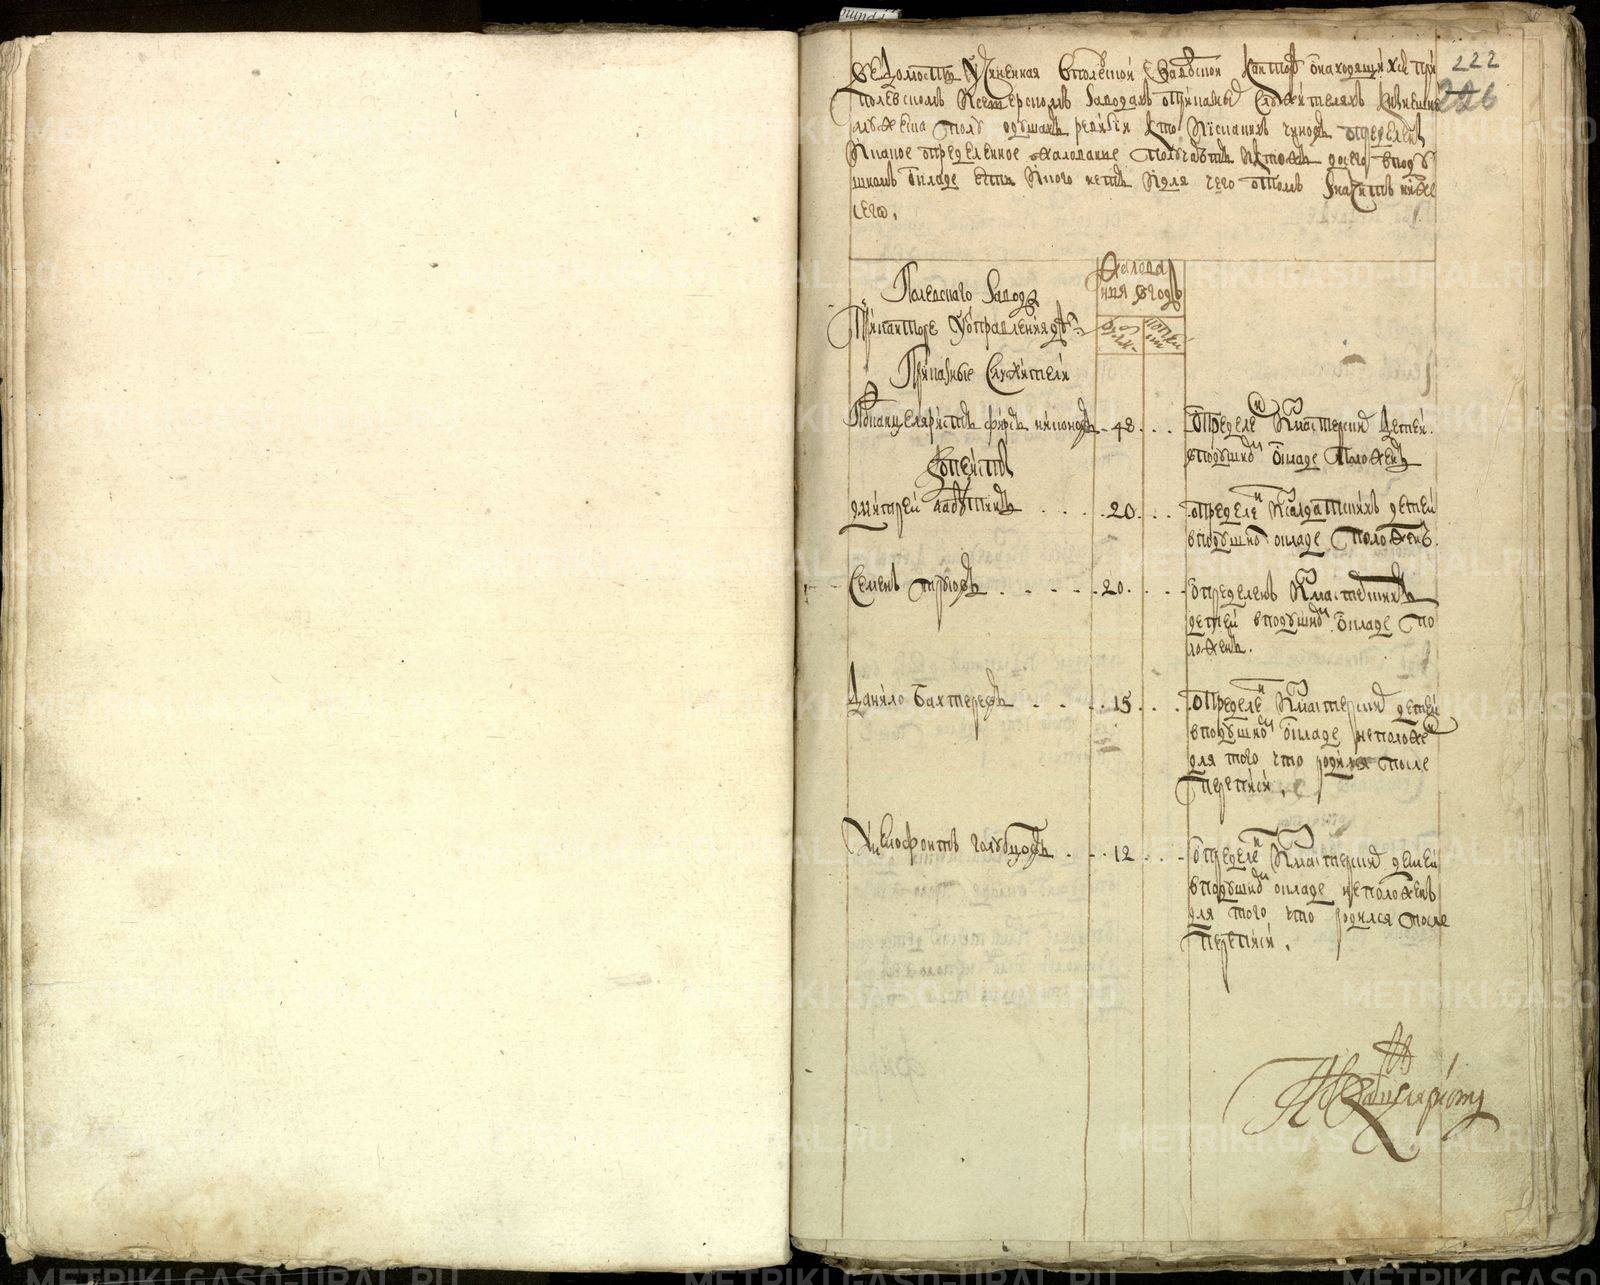 222
226
Ведомость учиненная в полевской заводской канторе о находящихся при
полевском и северском заводах приказных служителях
мужеска полу душах ревизии кто ис каких чинов определен
и какое определенное жалованье получает и хто до сего в поду
шном окладе есть и кого нет и для чего о том значит ниже
сего.
Полевского завода
жалова
ния в год
При канторе у отправления дел
рубли
копей
ки
Приказные служители
Подканцелярист фирс никонов 48
определен из мастерских детей.
в подушной окладе положен
Копеисты
дмитрей лабутин 20
определен из салдатских детей
в подушной окладе положен.
Семен трубов 20
определен из мастерских
детей в подушной окладе по
ложен.
данило бахтерев 15
определен из мастерских детей
в подушной окладе не положен
для того что родился после
переписи.
Ксенофонт голубцов 12
определен из мастерских детей
в подушной окладе не положен
для того что родился после
переписи.
Подканцелярист
METRIKI.GASO-URAL.RU